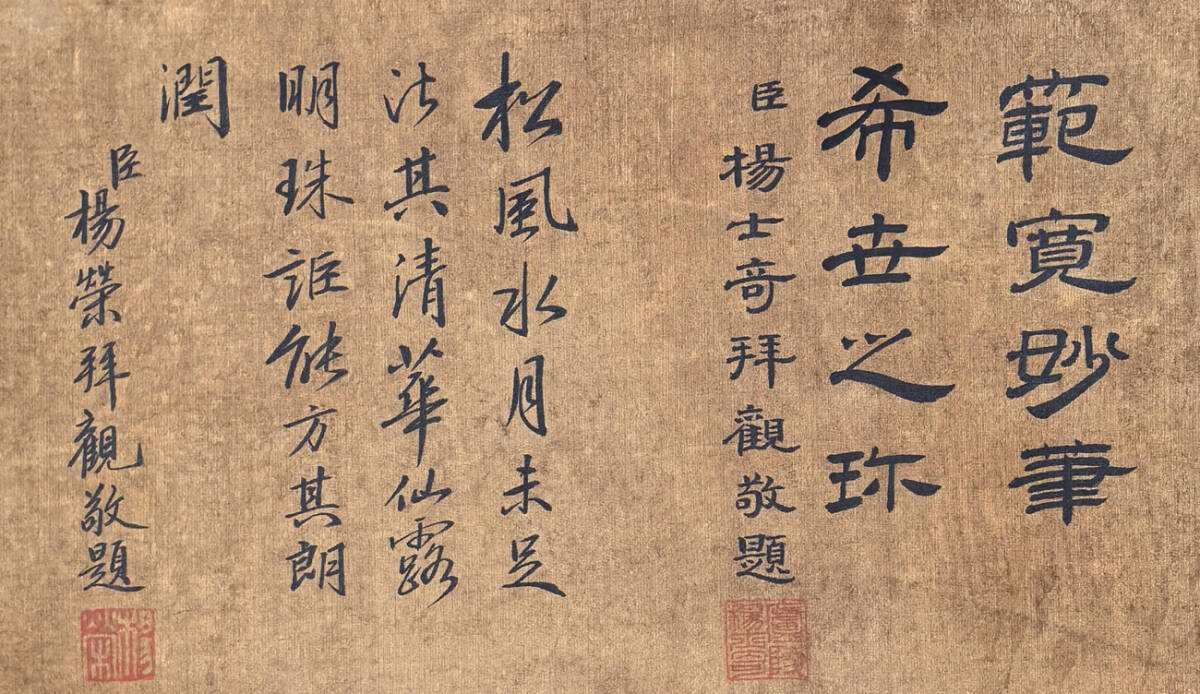 範寬妙筆
希世之珎
臣楊士奇拜觀敬題
松風水月未足
比其清華仙露
明珠詎能方其朗
潤
臣楊榮拜觀敬題